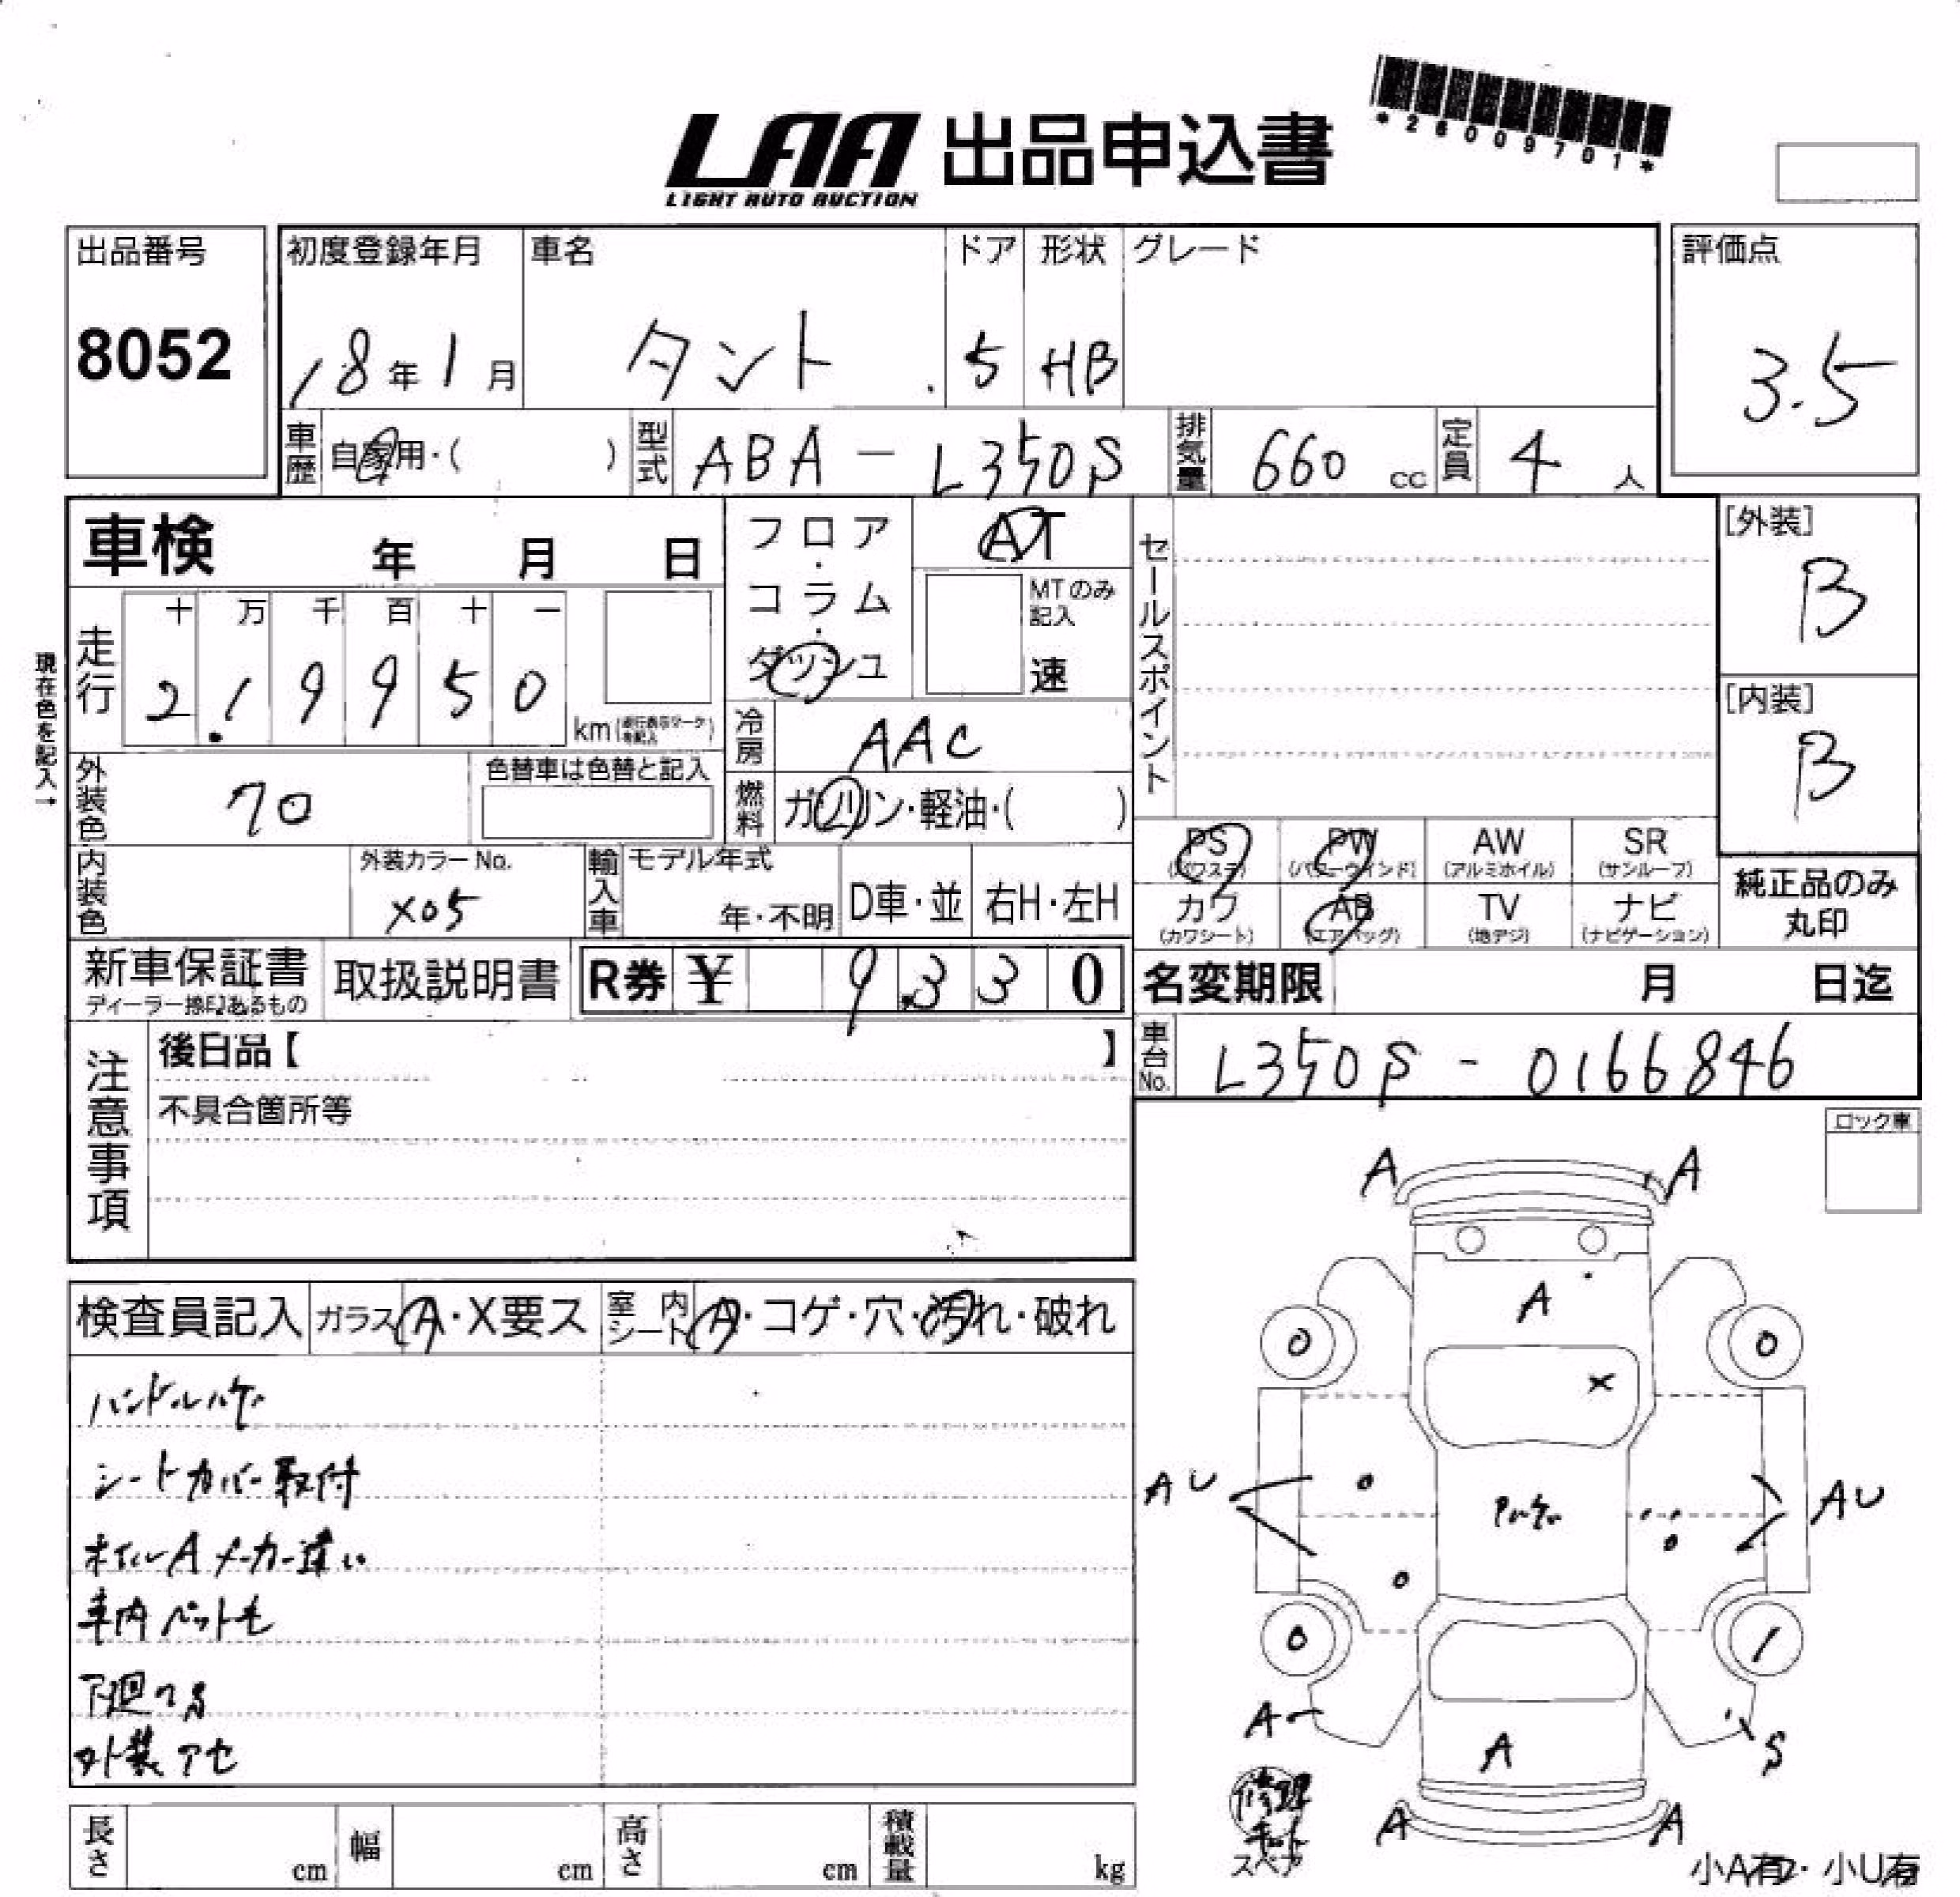 *26009701*
LAA 出品申込書
LIGHT AUTO AUCTION
出品番号
8052
初度登録年月
18年1月
車名
タント
ドア
5
形状
HB
グレード
評価点
3.5
車歴 自家用・( )
型式 ABA-L350S
排気量 660 cc
定員 4 人
車検 年 月 日
フロア・コラム・ダッシュ
AT
MTのみ記入
速
セールスポイント
[外装]
B
[内装]
B
現在色を記入→
走行
十 万 千 百 十 一
2 1. 9 9 5 0
km
冷房 AAC
燃料 ガソリン・軽油・( )
外装色
色替車は色替と記入
内装色
外装カラーNo.
X05
輸入車
モデル年式
年・不明
D車・並
右H・左H
PS (パワステ)
PW (パワーウインド)
AW (アルミホイル)
SR (サンルーフ)
カワ (カワシート)
AB (エアバッグ)
TV (地デジ)
ナビ (ナビゲーション)
純正品のみ丸印
新車保証書
ディーラー捺印あるもの
取扱説明書
R券 ¥ 9,330
名変期限 月 日迄
車台No. L350S-0166846
注意事項
後日品【 】
不具合箇所等
ロック車
検査員記入
ガラス A・X要ス
室内シート A・コゲ・穴・汚れ・破れ
ハンドルハゲ
シートカバー取付
ホイルA メーカー違い
車内ペット毛
下廻りS
外装アセ
A A
A
0 0
X
AU AU
0 /
A S
A
A A
修理キット
スペア
小A有・小U有
長さ cm
幅 cm
高さ cm
積載量 kg